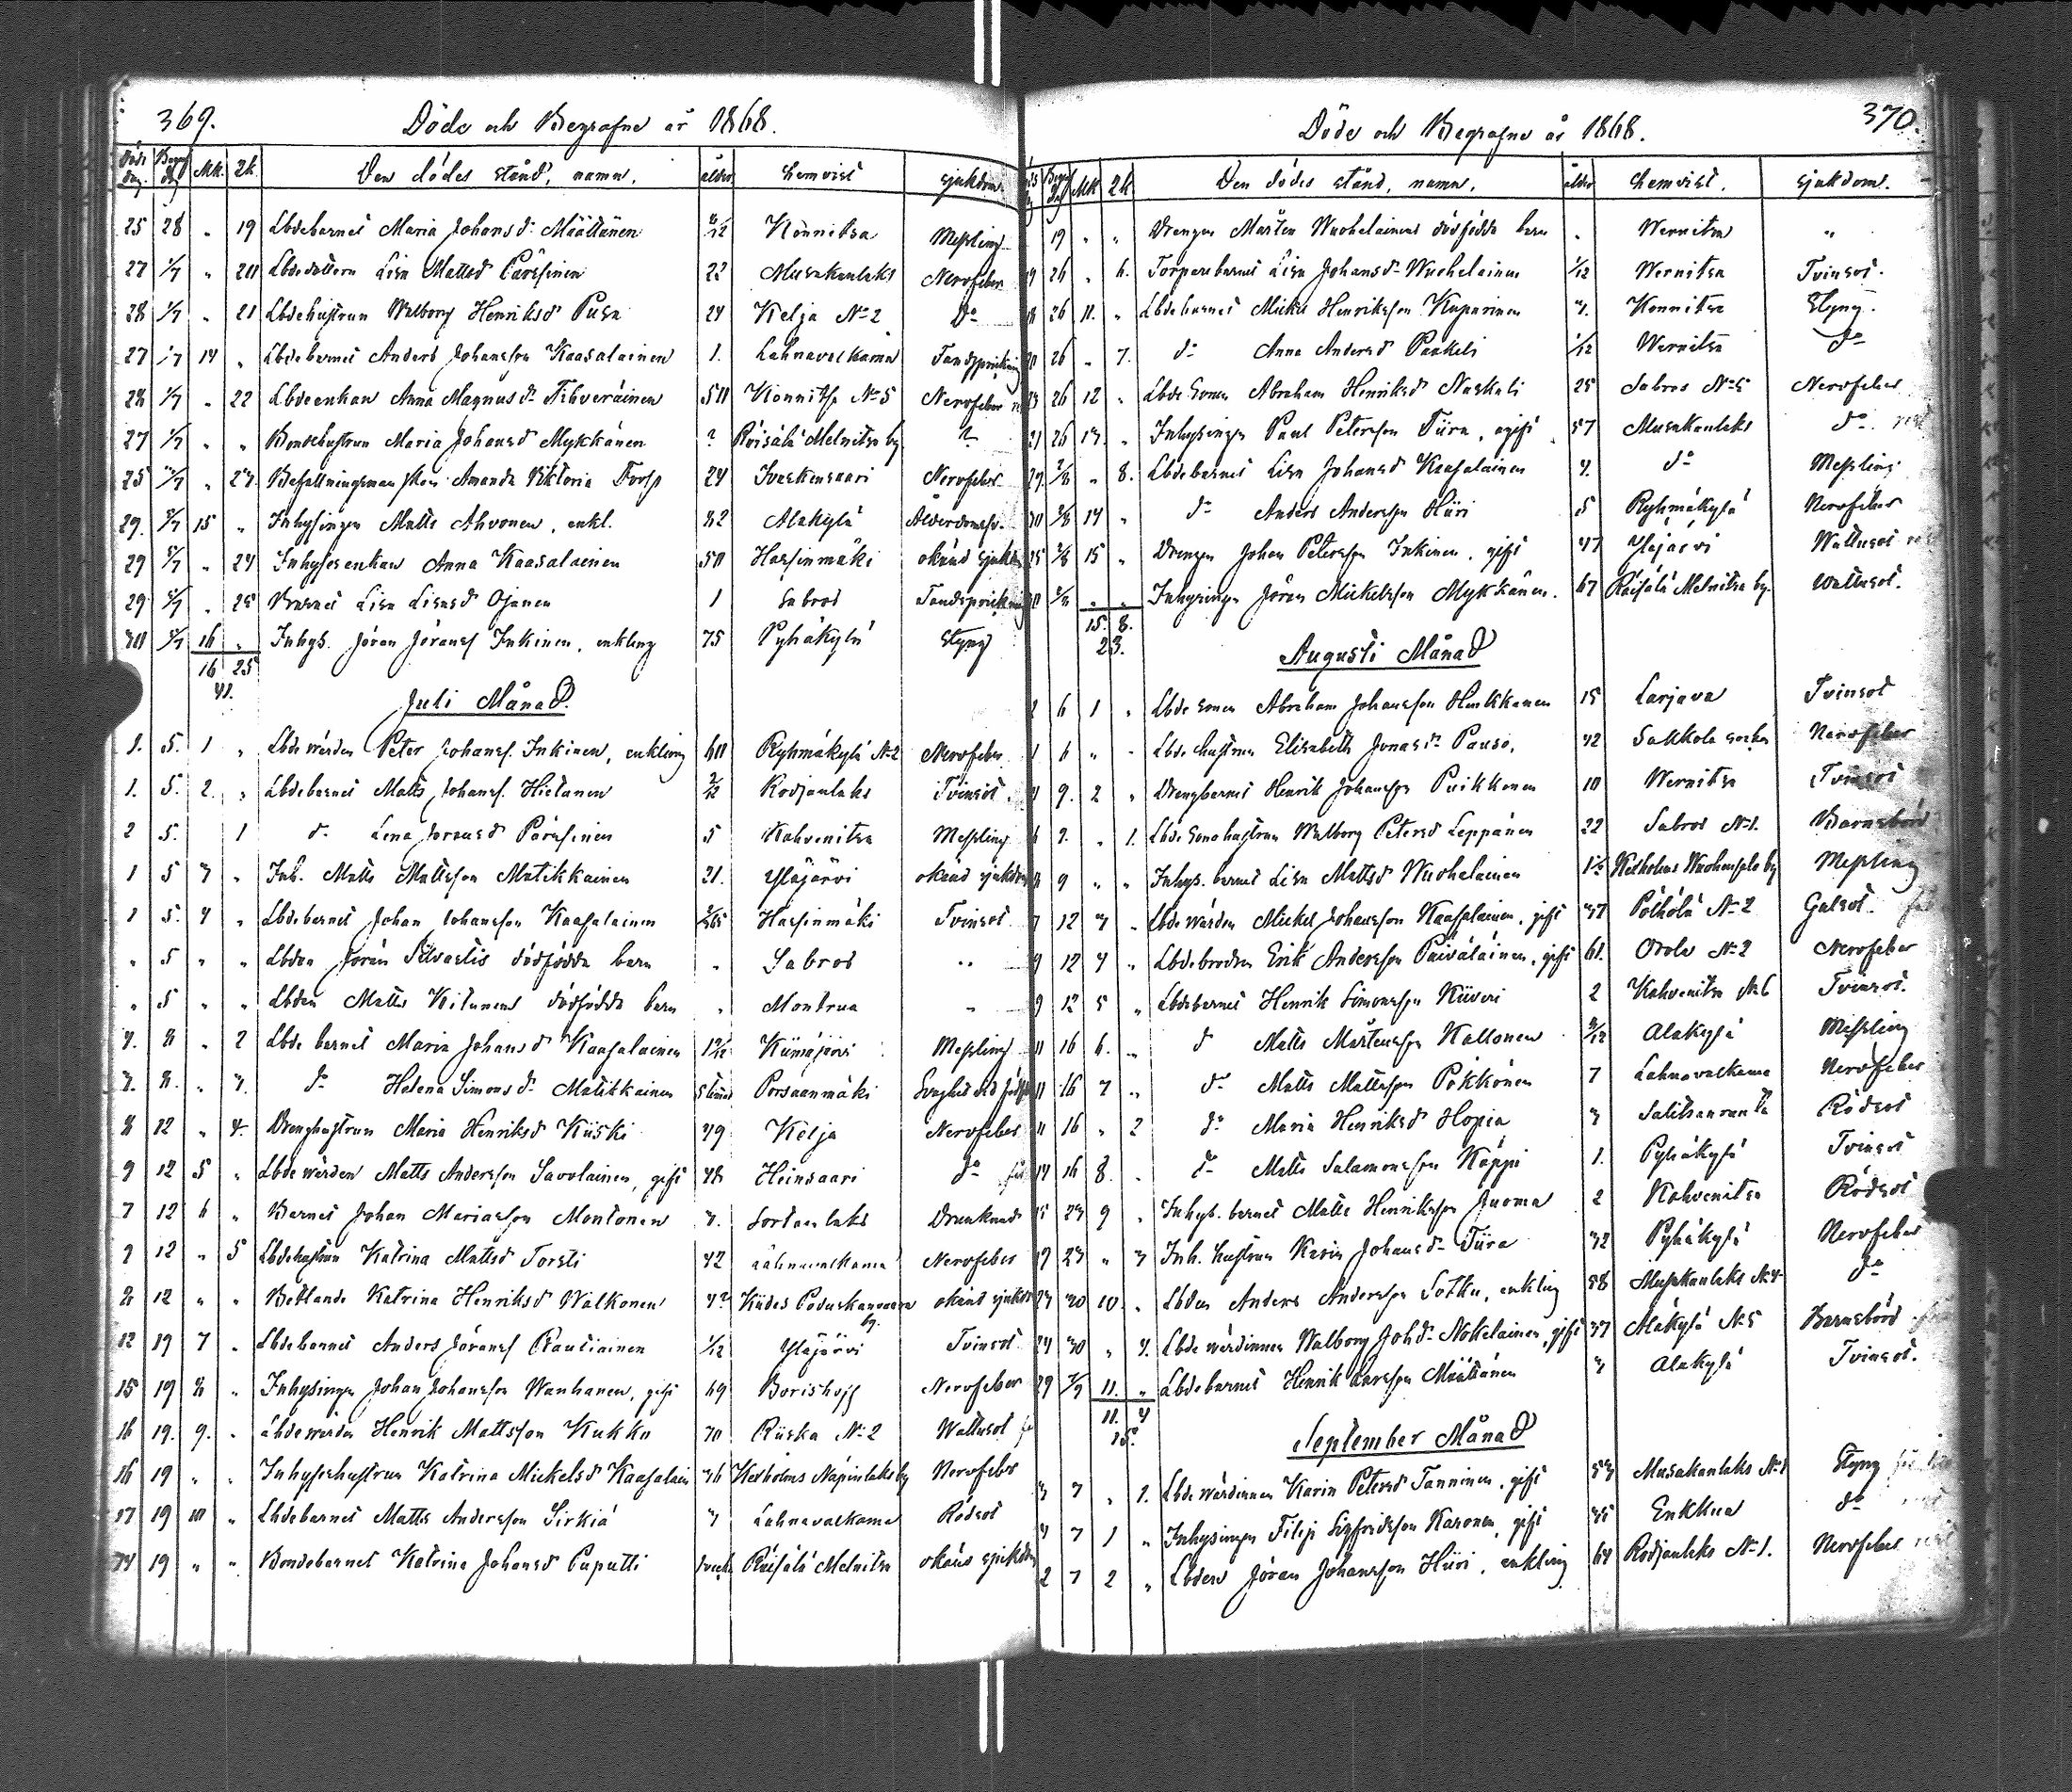 369.
Döde och Begrafne år 1868.
Död dag. Begr dag Mk. Qk. Den dödes stånd, namn. ålder hemvist sjukdom.
25 28 „ 19 Lbdebarnet Maria Johansd:r Määttänen 8/12 Konnitsa Messling
27 1/7 „ 20 Lbdedottern Lisa Mattsd Pärssinen 22 Musakanlaks Nervfeber
28 1/7 „ 21 Lbdehustrun Walborg Henriksd Pusa 24 Kelja No 2 do
27 1/7 14 „ Lbdebarnet Anders Johansson Kaasalainen 1. Lahnavalkama Tandsprickning
28 1/7 „ 22 Lbdeenkan Anna Magnusd:r Tihveräinen 50 Konnitsa No 5 Nervfeber
27 1/7 „ „ Bondehustrun Maria Johansd Mykkänen ? Räisälä Melnitsa by ?
25 3/7 „ 23. Befallningsman fkn Amanda Viktoria 24 Ivaskensaari Nervfeber
29. 5/7 15 „ Inhysingen Matts Ahvonen, enkl. 82 Alakylä Ålderdomssv.
29 5/7 „ 24 Inhysesenkan Anna Kaasalainen 50 Hassinmäki okänd sjukdom
29 5/7 „ 25 Barnet Lisa Lisasd Ojanen 1 Sabros Tandsprickning
30 5/7 16 „ Inhys. Jöran Jöransf Inkinen, enkling 75 Pyhäkylä Styng
16 25
41.
Juli Månad.
1. 5. 1 „ Lbdewärden Peter Johansf. Inkinen, enkling 60 Ryhmäkylä No 2 Nervfeber
1. 5. 2. „ Lbdebarnet Matts Johansf. Hietanen Rodjanlaks Tvinsot.
2 5. 1 do Lena Jöransd Pärssinen 5 Kahvenitsa Messling
1 5 3 „ Inh. Matts Mattsson Matikkainen 21. Yläjärvi okänd sjukdom
1 5. 4 „ Lbdebarnet Johan Johansson Kaasalainen Hassinmäki Tvinsot
„ 5 „ „ Lbden Jöran Silvastis dödfödda barn „ Sabros „
„ 5 „ „ Lbden Matts Kitunens dödfödda barn „ Montrua „
3. 8 „ 2 Lbde barnet Maria Johansd Kaasalainen Kiimajärvi Messling
3. 8. „ 3. do Helena Simonsd:r Matikkainen 5 timar Porsaanmäki Svaghet vid födsel
8 12 „ 4. Drenghustrun Maria Henriksd Kiiski 49 Kelja Nervfeber
9 12 5 „ Lbdewärden Matts Andersson Savolainen, gift 48 Heinsaari do
7 12 6 „ Barnet Johan Mariasson Montonen 3. Sortanlaks Drunknad
9 12 „ 5 Lbdehustrun Katrina Mattsd Torsti 42 Lahnavalkama Nervfeber
8 12 „ „ Betlande Katrina Henriksd Walkonen 43 Kides Potuskanvaara by. okänd sjukdom
12 19 7 „ Lbdebarnet Anders Jöransf Rautiainen 1/12 Yläjärvi Tvinsot
15 19 8 „ Inhysingen Johan Johansson Wanhanen, gift 69 Borishoff Nervfeber
16 19. 9. „ Lbdewärden Henrik Mattsson Kukko 70 Riiska No 2 Wattusot
16 19 „ „ Inhysehustrun Katrina Mickelsd Kaasalain 36 Kexholms Näpinlaks by Nervfeber
17 19 10 „ Lbdebarnet Matts Andersson Sirkiä 3 Lahnavalkama Rödsot
14 19 „ „ Bondebarnet Katrina Johansd Paputti Räisälä Melnitsa okänd sjukdom
370.
Döde och Begrafne år 1868.
Begr dag Mk Qk Den dödes stånd, namn. ålder hemvist. sjukdom.
19 „ „ Drengen Mårten Wuohelainens dödfödda barn „ Wernitsa „
19 26 „ 6. Torparebarnet Lisa Johansd:r Wuohelainen 1/12 Wernitsa Tvinsot.
18 26 11. „ Lbdebarnet Mickel Henriksson Kuparinen 3. Konnitsa Styng.
20 26 „ 7. do Anna Andersd Paukeli 1/12 Wernitsa do
23 26 12 „ Lbde sonen Abraham Henriksd Naskali 25 Sabros No 5 Nervfeber
21 26 13. „ Inhysingen Paul Petersson Tiira, ogift 57 Musakanlaks do
29. 2/8 „ 8. Lbdebarnet Lisa Johansd Kaasalainen 3. do Messling
30 2/8 14 „ do Anders Andersson Hiiri 5 Ryhmäkylä Nervfeber
25 2/8 15 „ Drengen Johan Petersson Inkinen, gift 47 Yläjärvi Wattusot
30 2/8 „ „ Inhysingen Jöran Mickelsson Mykkänen. 67 Räisälä Melnitsa by. Wattusot.
15. 8.
23.
Augusti Månad
1 6 1 „ Lbde sonen Abraham Johansson Hinkkanen 15 Larjava Tvinsot
1 6 „ „ Lbde hustrun Elisabeth Jonasd:r Pauso, 42 Sakkola socken Nervfeber
4 9. 2 „ Drengbarnet Henrik Johansson Puikkonen 10 Wernitsa Tvinsot
6 9. „ 1. Lbde sonehustrun Walborg Petersd Leppänen 22 Sabros No 1. Barnsbörd
8 9 „ „ Inhys. barnet Lisa Mattsd Wuohelainen Kexholms Wuohensalo by Messling
7 12 3 „ Lbde wärden Mickel Johansson Kaasalainen, gift 37 Pölhölä No 2 Gulsot.
9 12 4 „ Lbdebrodren Erik Andersson Päiväläinen, gift 61. Orola No 2 Nervfeber
9 12 5 „ Lbdebarnet Henrik Simonsson Kiiveri 2 Kahvenitsa No 6 Tvinsot.
11 16 6. „ do Matts Mårtensson Kallonen 8/12 Alakylä Messling
11 16 7 „ do Matts Mattsson Pökkönen 7 Lahnavalkama Nervfeber
11 16 „ 2 do Maria Henriksd Hopia 3 Salitsanranta Rödsot
14 16 8. „ do Matts Salamonsson Käppi 1. Pyhäkylä Tvinsot
15 23 9 „ Inhys. barnet Matts Henriksson Juoma 2 Kahvenitsa Rödsot
19 23 „ 3 Inh. hustrun Karin Johansd:r Tiira 32 Pyhäkylä Nervfeber
23 30 10. „ Lbden Anders Andersson Sotku, enkling 58 Musakanlaks No 4 do
24 30 „ 4. Lbde wärdinnan Walborg Johd:r Nokelainen, gift 37 Alakylä No 5 Barnsbörd
29 2/9 11. „ Lbdebarnet Henrik Larsson Määttänen 3 Alakylä Tvinsot.
11. 4
15.
September Månad
3 7 „ 1. Lbde wärdinnan Karin Petersd Tanninen, gift 53 Musakanlaks No 1 Styng
4 7 1 „ Inhysingen Filip Sigfridsson Karonen, gift 35 Enkkua do
2 7 2 „ Lbden Jöran Johansson Hiiri, enkling 64 Rodjanlaks No 1. Nervfeber